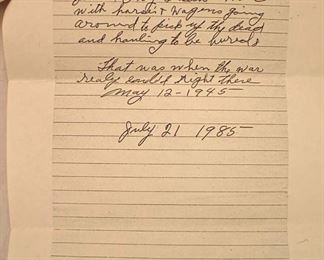 with horse & Wagons going
around to pick up the dead
and hauling to be burried
That was when the war
realy ended right there
May 12-1945
July 21 1985